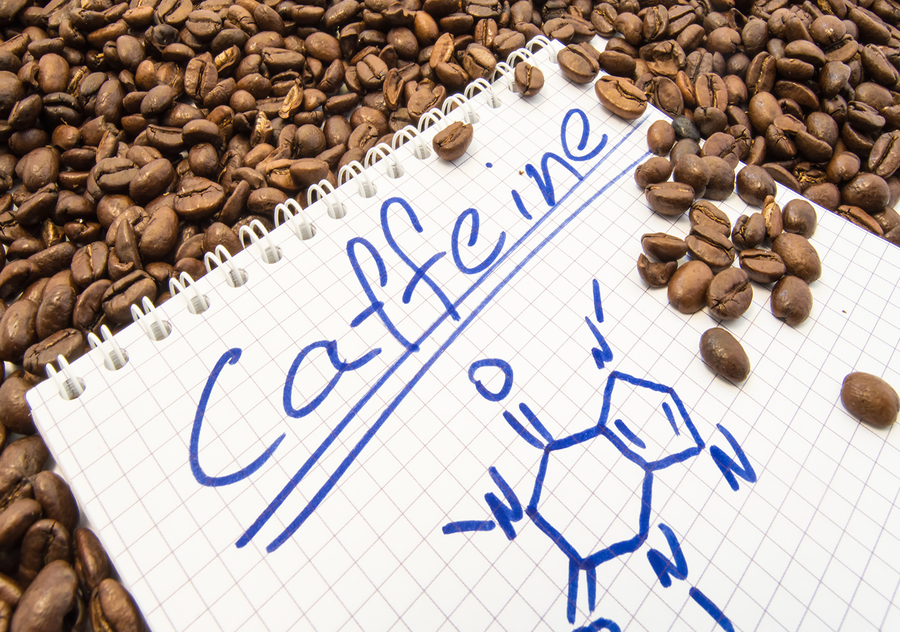 Caffeine
O
N
N
N
N
O